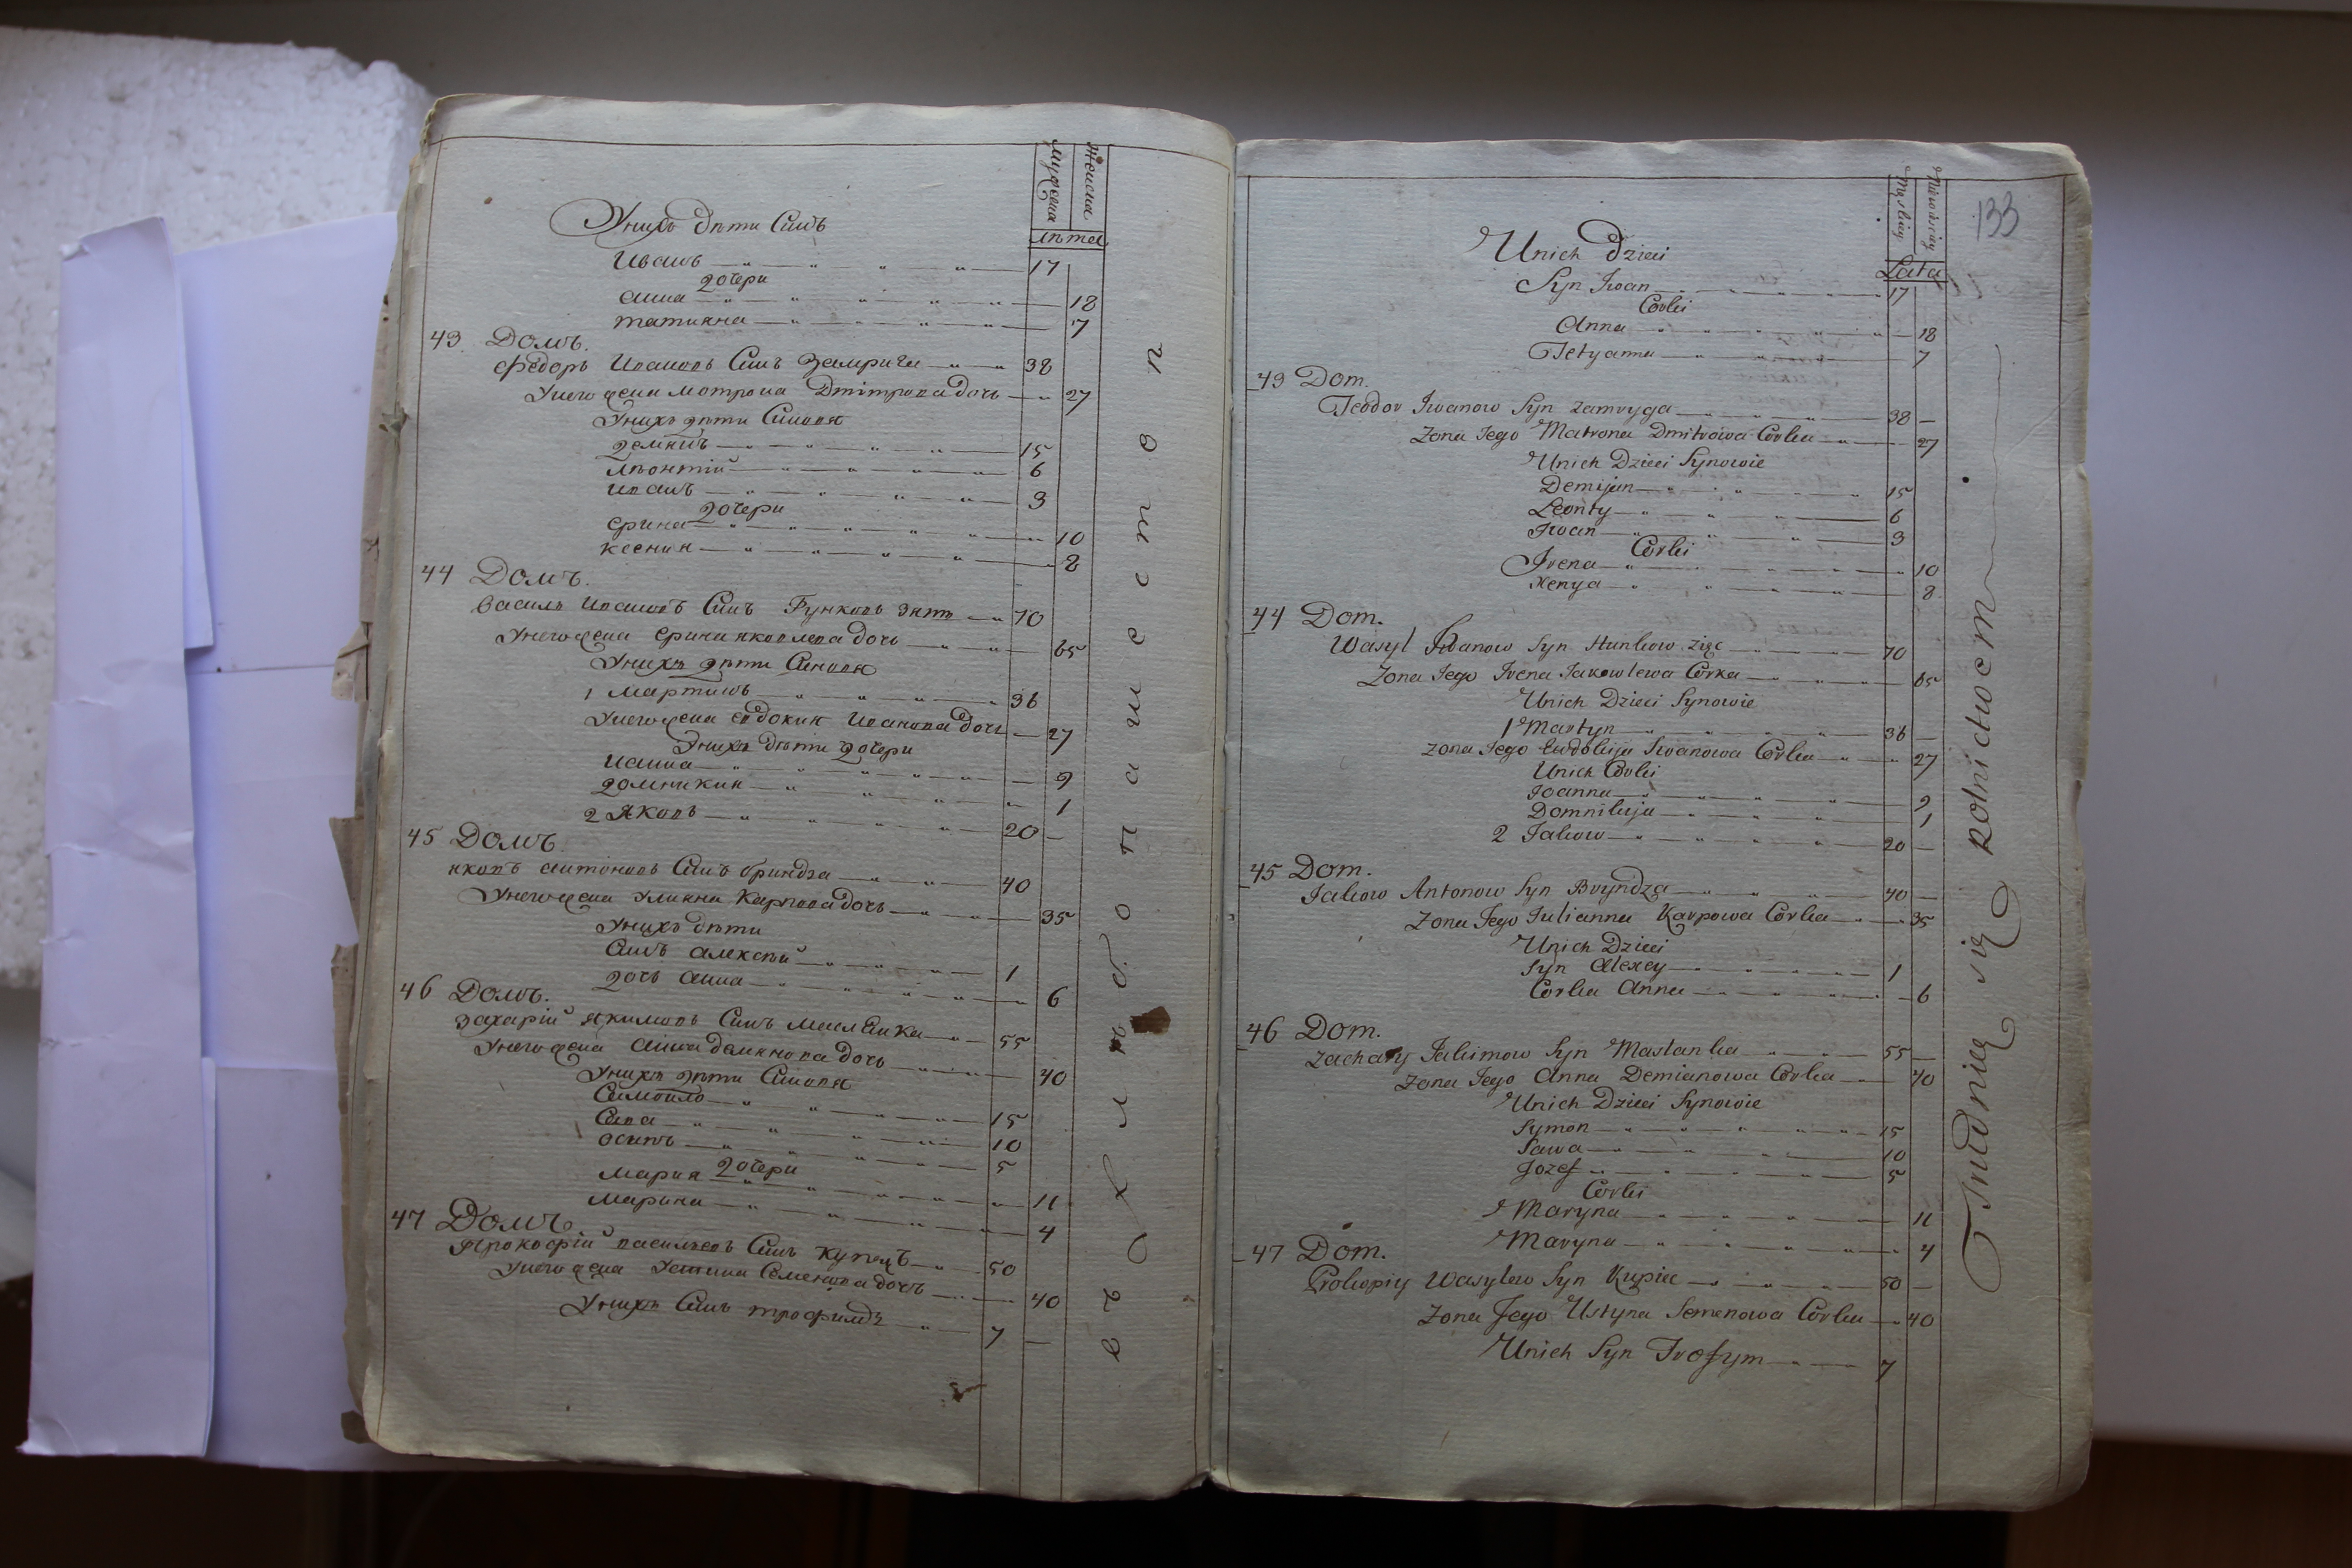 Мужеска
Женска
лѣта
Унихъ дѣти Синъ
Иванъ 17
дочери
Анна 18
татияна 7
43 Домъ.
Федоръ Ивановъ Синъ Замрига 38
Унего жена мотрона Дмітрова дочь 27
Унихъ дѣти Синовя
демянъ 15
Лѣонтій 6
Иванъ 3
дочери
Ерина 10
Ксения 8
44 Домъ.
василь Ивановъ Синъ Гунковъ зять 70
Унего жена Ерина яковлева дочь 65
Унихъ дѣти Синовя
1 Мартинъ 36
Унего жена евдокия Иванова дочь 27
Унихъ дѣти дочери
Ианна 9
домникия 1
2 Яковъ 20 —
45 Домъ
яковъ антоновъ Синъ бриндза 40
Унего жена Улияна Карпова дочь 35
Унихъ дѣти
Синъ алексѣй 1
дочь анна 6
46 Домъ.
захарій якимовъ Синъ Маслянка 55
Унего жена анна демянова дочь 40
Унихъ дѣти Синовя
Самойло 15
Сава 10
осипъ 5
дочери
Мария 11
Марина 4
47 Домъ.
Прокофій васильевъ Синъ купецъ 50
Унего жена Устина Семенова дочь 40
Унихъ Синъ трофимъ 7 —
хлѣбопашеством
133
Męskiey
Niewieściey
Lata
Unich Dzieci
Syn Iwan 17
Corki
Anna 18
Tetyanna 7
43 Dom.
Teodor Iwanow Syn Zamryga 38 —
Zona Jego Matrona Dmitrowa Corka 27
Unich Dzieci Synowie
Demijan 15
Leonty 6
Iwan 3
Corki
Irena 10
Xenya 8
44 Dom.
Wasyl Iwanow Syn Hunkow zięc 70
Zona Jego Irena Jakowlewa Corka 65
Unich Dzieci Synowie
1 Martyn 36 —
Zona Jego Ewdokija Iwanowa Corka 27
Unich Corki
Joanna 9
Domnikija 1
2 Jakow 20 —
45 Dom.
Jakow Antonow Syn Bryndza 40 —
Zona Jego Julianna Karpowa Corka 35
Unich Dzieci
Syn Alexey 1
Corka Anna 6
46 Dom.
Zachary Jakimow Syn Maslanka 55 —
Zona Jego Anna Demianowa Corka 40
Unich Dzieci Synowie
Symon 15
Sawa 10
Jozef 5
Corki
Maryna 11
Maryna 4
47 Dom.
Prokopiy Wasylew Syn Kupiec 50 —
Zona Jego Ustyna Semenowa Corka 40
Unich Syn Trofym 7
Trudnieą się Rolnictwem